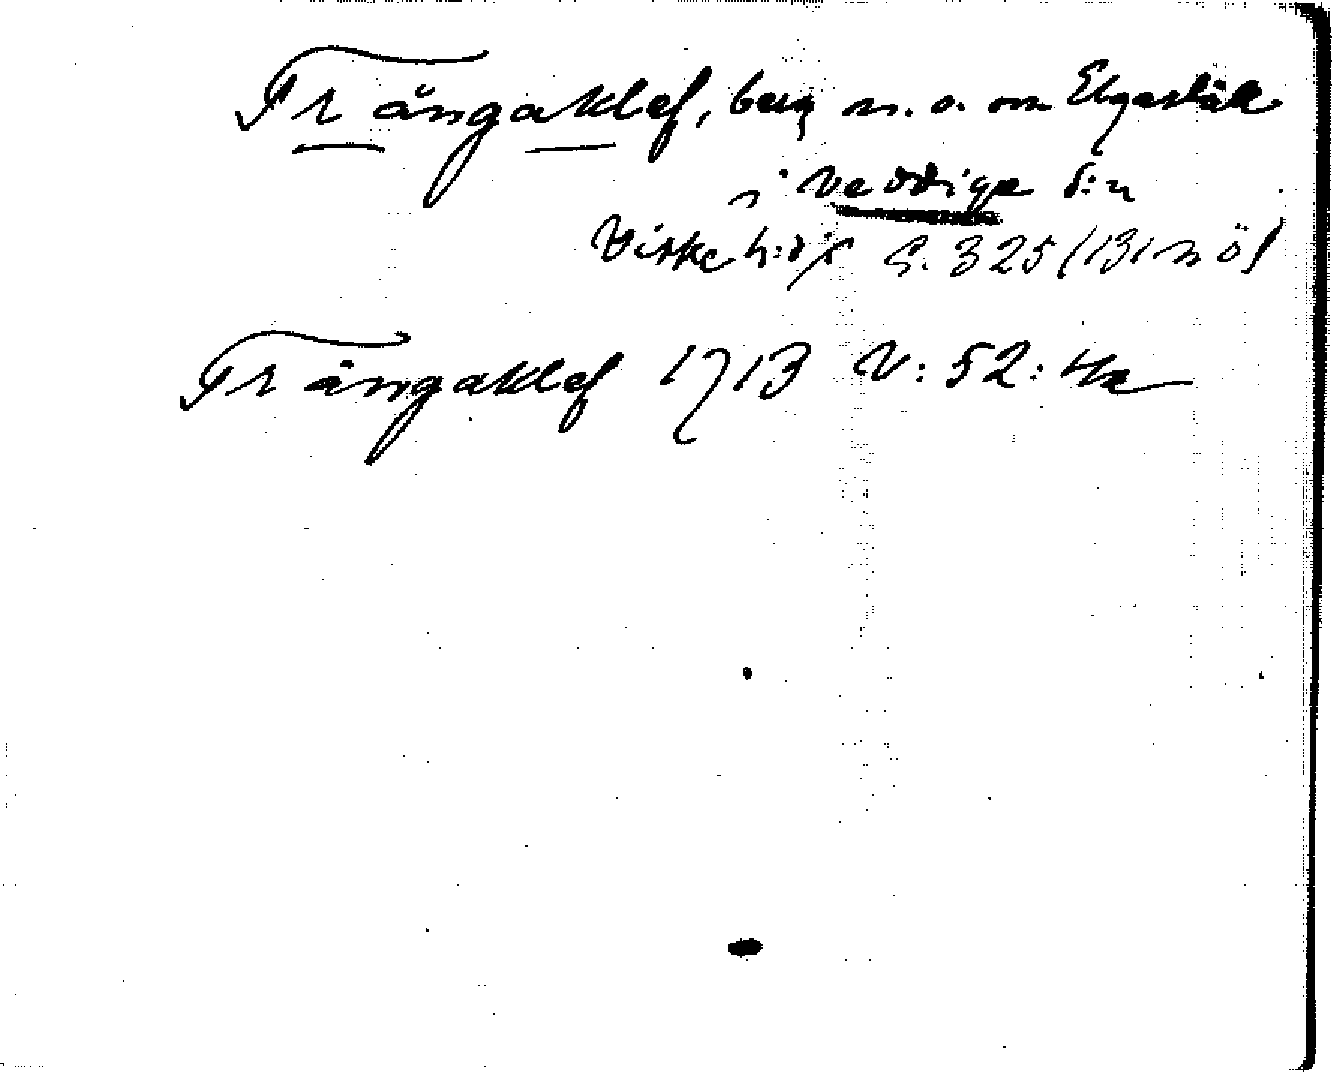 Trångaklef, berg n. o. om Elgaställ
i Veddige s:n
Viske h:d S. 325 (131 n ö)
Trångaklef 1713 V: 52: 4a